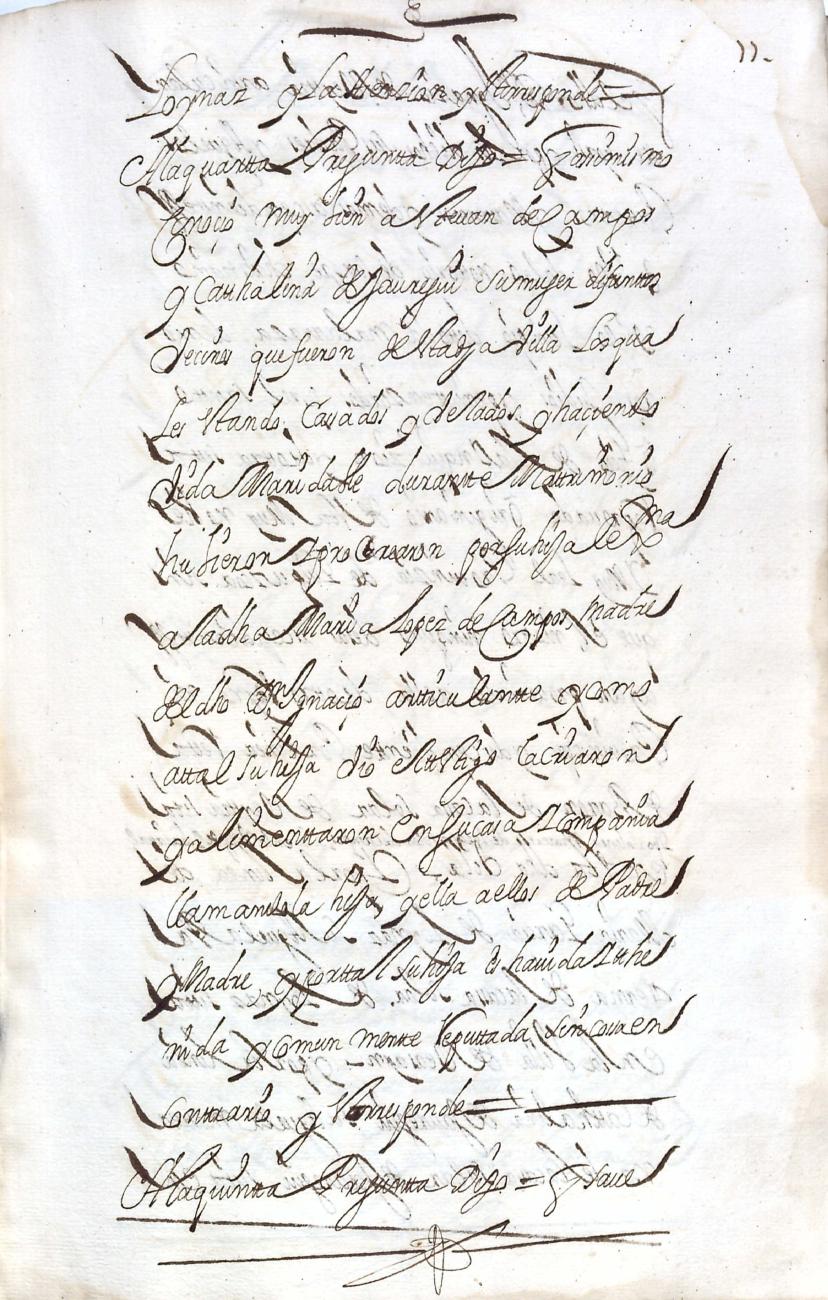 11.
Lo qual y la atenzion y Responde =
A la quartta Pregunta Dijo = q asimismo
Conoçio muy bien a Steuan de Campos
y Cathalina de Jauregui su muger difuntos
Veçinos que fueron de stadha Villa Los qua
les stando Casados y Velados y haçiendo
vida Maridable durantte Matrimonio
hubieron y procrearon por su hija lexma
a la dha Maria Lopez de Campos, madre
del dho Dn Ignaçio articulantte y como
a ttal su hija dho stt la criaron
y alimenttaron en su casa y compania
llamandola hija, y ella a ellos de Padre
y Madre, y por ttal su hija es hauida y the
nida y comun mentte Reputtada sin cosa en
Conttrario y Responde =
A la quintta Pregunta Dijo = q saue